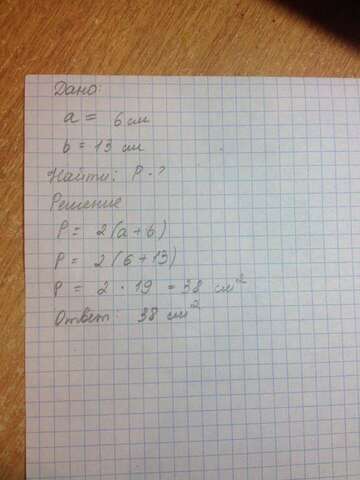 Дано:
a = 6 см
b = 13 см
Найти: P - ?
Решение
P = 2(a+b)
P = 2(6+13)
P = 2 · 19 = 38 см²
Ответ: 38 см²